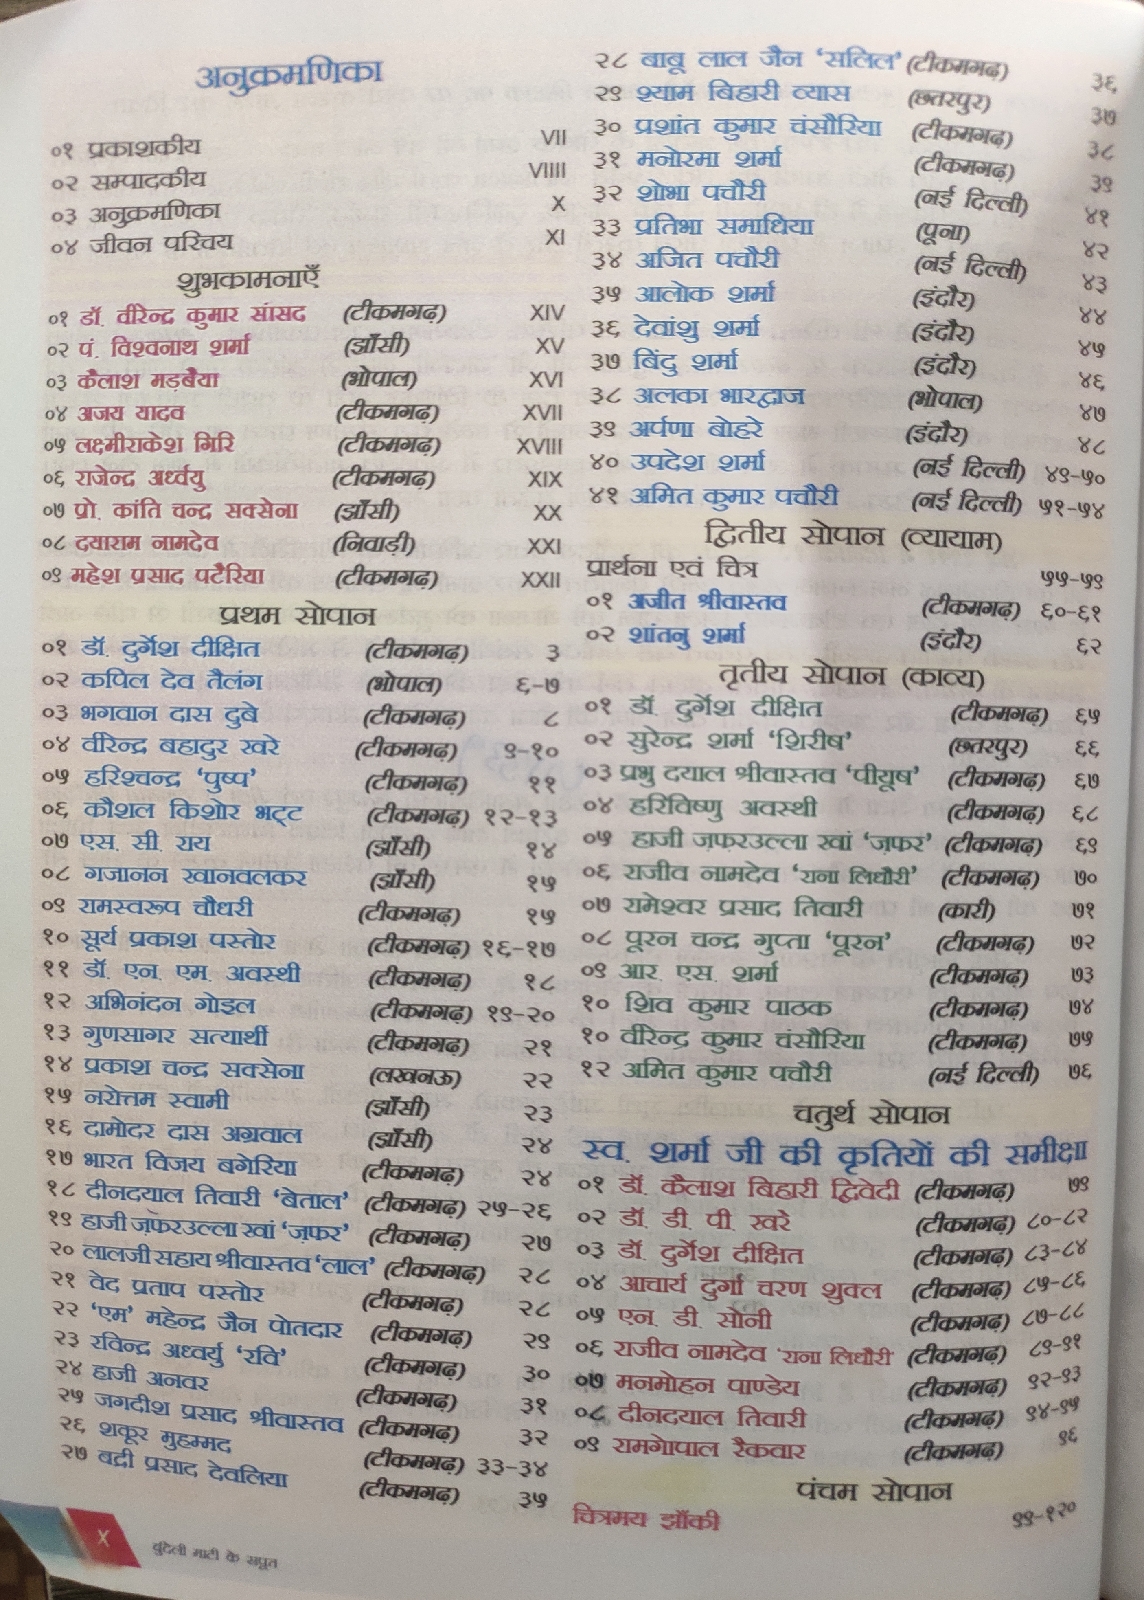 अनुक्रमणिका
०१ प्रकाशकीय VII
०२ सम्पादकीय VIIII
०३ अनुक्रमणिका X
०४ जीवन परिचय XI
शुभकामनाएँ
०१ डॉ. वीरेन्द्र कुमार सांसद (टीकमगढ़) XIV
०२ पं. विश्वनाथ शर्मा (झाँसी) XV
०३ कैलाश मड़बैया (भोपाल) XVI
०४ अजय यादव (टीकमगढ़) XVII
०५ लक्ष्मीराकेश गिरि (टीकमगढ़) XVIII
०६ राजेन्द्र अर्ध्वयु (टीकमगढ़) XIX
०७ प्रो. कांति चन्द्र सक्सेना (झाँसी) XX
०८ दयाराम नामदेव (निवाड़ी) XXI
०९ महेश प्रसाद पटैरिया (टीकमगढ़) XXII
प्रथम सोपान
०१ डॉ. दुर्गेश दीक्षित (टीकमगढ़) ३
०२ कपिल देव तैलंग (भोपाल) ६-७
०३ भगवान दास दुबे (टीकमगढ़) ८
०४ वीरेन्द्र बहादुर खरे (टीकमगढ़) ९-१०
०५ हरिश्चन्द्र ‘पुष्प’ (टीकमगढ़) ११
०६ कौशल किशोर भट्ट (टीकमगढ़) १२-१३
०७ एस. सी. राय (झाँसी) १४
०८ गजानन खानवलकर (झाँसी) १५
०९ रामस्वरूप चौधरी (टीकमगढ़) १५
१० सूर्य प्रकाश पस्तोर (टीकमगढ़) १६-१७
११ डॉ. एन. एम. अवस्थी (टीकमगढ़) १८
१२ अभिनंदन गोइल (टीकमगढ़) १९-२०
१३ गुणसागर सत्यार्थी (टीकमगढ़) २१
१४ प्रकाश चन्द्र सक्सेना (लखनऊ) २२
१५ नरोत्तम स्वामी (झाँसी) २३
१६ दामोदर दास अग्रवाल (झाँसी) २४
१७ भारत विजय बगेरिया (टीकमगढ़) २४
१८ दीनदयाल तिवारी ‘बेताल’ (टीकमगढ़) २५-२६
१९ हाजी ज़फ़रउल्ला खां ‘ज़फ़र’ (टीकमगढ़) २७
२० लालजी सहाय श्रीवास्तव ‘लाल’ (टीकमगढ़) २८
२१ वेद प्रताप पस्तोर (टीकमगढ़) २८
२२ ‘एम’ महेन्द्र जैन पोतदार (टीकमगढ़) २९
२३ रविन्द्र अध्वर्यु ‘रवि’ (टीकमगढ़) ३०
२४ हाजी अनवर (टीकमगढ़) ३१
२५ जगदीश प्रसाद श्रीवास्तव (टीकमगढ़) ३२
२६ शकूर मुहम्मद (टीकमगढ़) ३३-३४
२७ बद्री प्रसाद देवलिया (टीकमगढ़) ३५
X बुंदेली माटी के सपूत
२८ बाबू लाल जैन ‘सलिल’ (टीकमगढ़) ३६
२९ श्याम बिहारी व्यास (छतरपुर) ३७
३० प्रशांत कुमार चंसौरिया (टीकमगढ़) ३८
३१ मनोरमा शर्मा (टीकमगढ़) ३९
३२ शोभा पचौरी (नई दिल्ली) ४१
३३ प्रतिभा समाधिया (पूना) ४२
३४ अजित पचौरी (नई दिल्ली) ४३
३५ आलोक शर्मा (इंदौर) ४४
३६ देवांशु शर्मा (इंदौर) ४५
३७ बिंदु शर्मा (इंदौर) ४६
३८ अलका भारद्वाज (भोपाल) ४७
३९ अर्पणा बोहरे (इंदौर) ४८
४० उपदेश शर्मा (नई दिल्ली) ४९-५०
४१ अमित कुमार पचौरी (नई दिल्ली) ५१-५४
द्वितीय सोपान (व्यायाम)
प्रार्थना एवं चित्र ५५-५९
०१ अजीत श्रीवास्तव (टीकमगढ़) ६०-६१
०२ शांतनु शर्मा (इंदौर) ६२
तृतीय सोपान (काव्य)
०१ डॉ. दुर्गेश दीक्षित (टीकमगढ़) ६५
०२ सुरेन्द्र शर्मा ‘शिरीष’ (छतरपुर) ६६
०३ प्रभु दयाल श्रीवास्तव ‘पीयूष’ (टीकमगढ़) ६७
०४ हरिविष्णु अवस्थी (टीकमगढ़) ६८
०५ हाजी ज़फ़रउल्ला खां ‘ज़फ़र’ (टीकमगढ़) ६९
०६ राजीव नामदेव ‘राना लिधौरी’ (टीकमगढ़) ७०
०७ रामेश्वर प्रसाद तिवारी (कारी) ७१
०८ पूरन चन्द्र गुप्ता ‘पूरन’ (टीकमगढ़) ७२
०९ आर. एस. शर्मा (टीकमगढ़) ७३
१० शिव कुमार पाठक (टीकमगढ़) ७४
१० वीरेन्द्र कुमार चंसौरिया (टीकमगढ़) ७५
१२ अमित कुमार पचौरी (नई दिल्ली) ७६
चतुर्थ सोपान
स्व. शर्मा जी की कृतियों की समीक्षा
०१ डॉ. कैलाश बिहारी द्विवेदी (टीकमगढ़) ७९
०२ डॉ. डी. पी. खरे (टीकमगढ़) ८०-८२
०३ डॉ. दुर्गेश दीक्षित (टीकमगढ़) ८३-८४
०४ आचार्य दुर्गा चरण शुक्ल (टीकमगढ़) ८५-८६
०५ एन. डी. सोनी (टीकमगढ़) ८७-८८
०६ राजीव नामदेव ‘राना लिधौरी’ (टीकमगढ़) ८९-९१
०७ मनमोहन पाण्डेय (टीकमगढ़) ९२-९३
०८ दीनदयाल तिवारी (टीकमगढ़) ९४-९५
०९ रामगोपाल रैकवार (टीकमगढ़) ९६
पंचम सोपान
चित्रमय झाँकी ९९-१२०